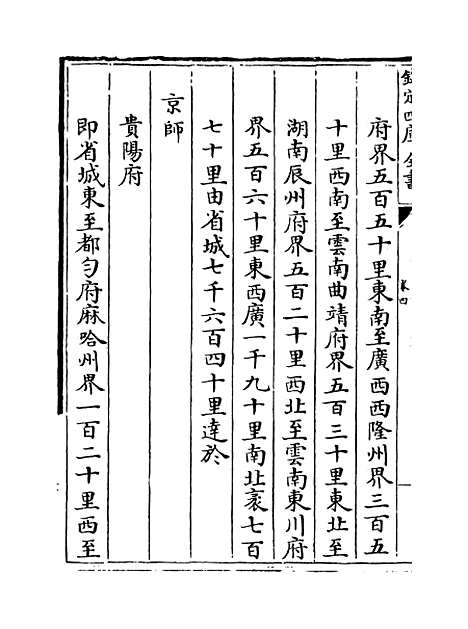 欽定四庫全書
卷四
府界五百五十里東南至廣西西隆州界三百五
十里西南至雲南曲靖府界五百三十里東北至
湖南辰州府界五百二十里西北至雲南東川府
界五百六十里東西廣一千九十里南北袤七百
七十里由省城七千六百四十里達於
京師
貴陽府
即省城東至都勻府麻哈州界一百二十里西至